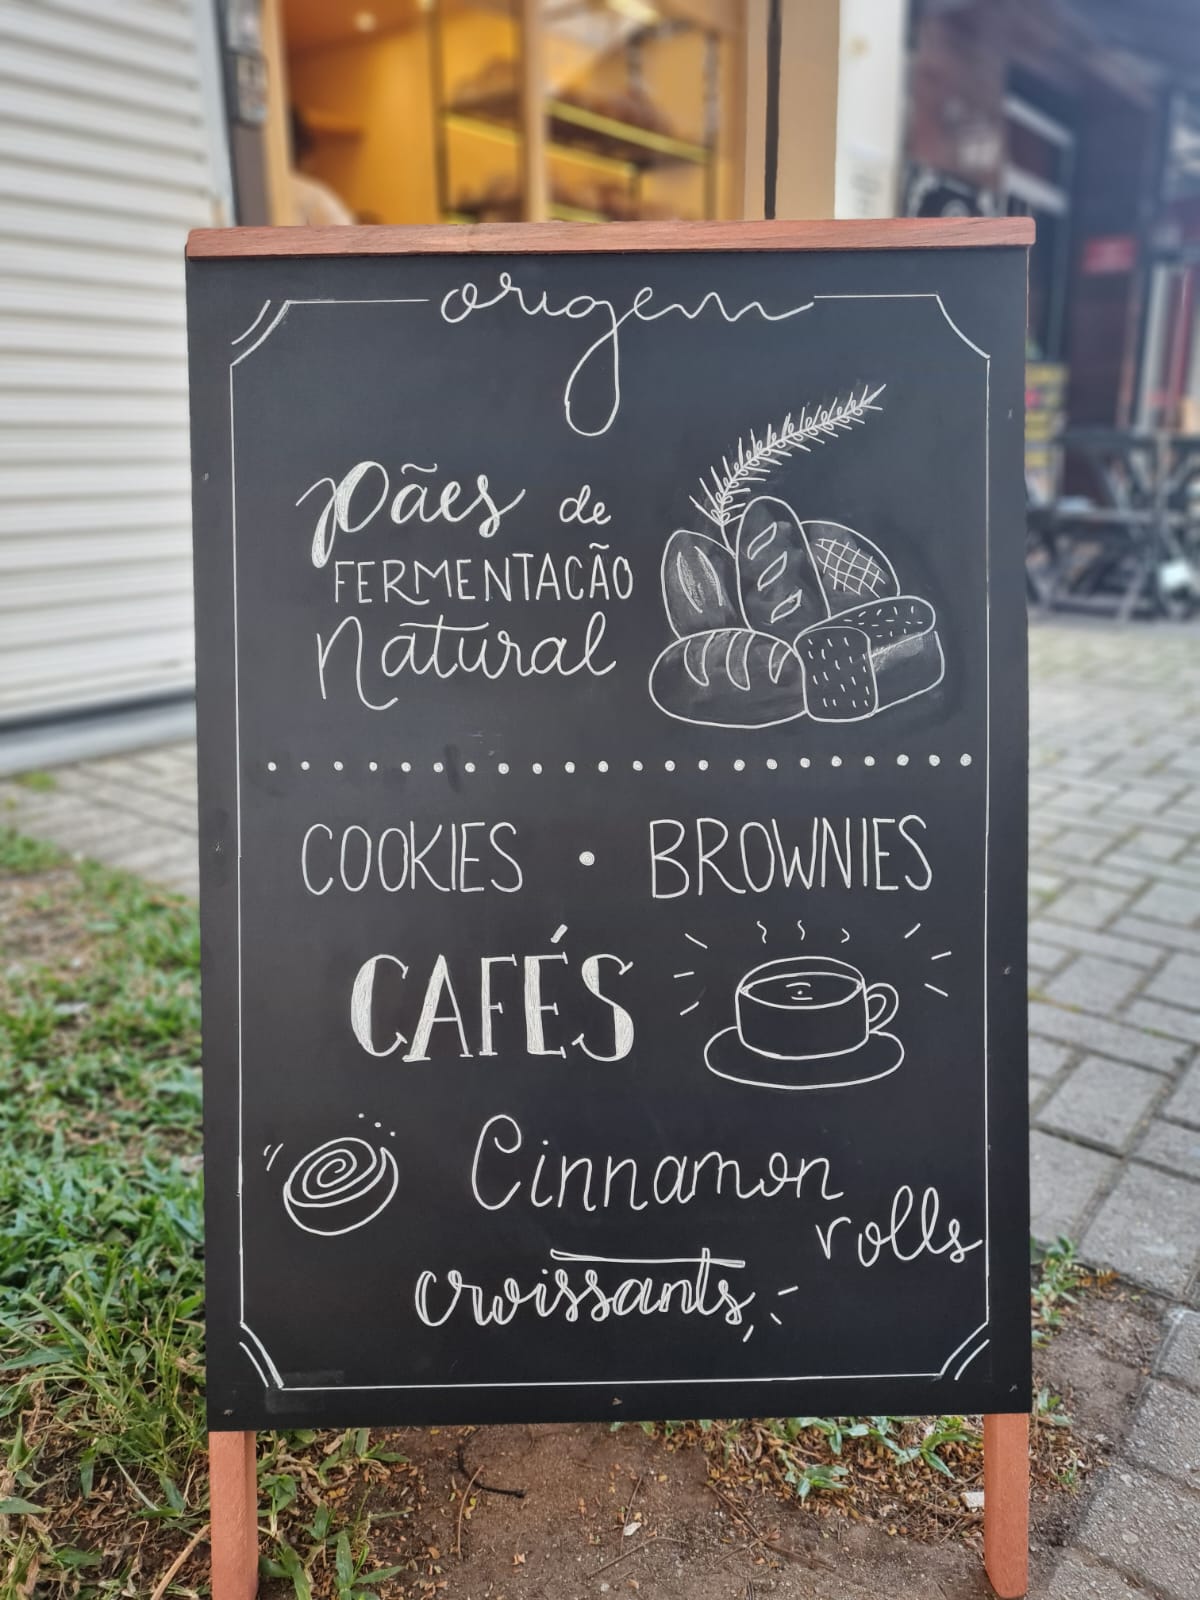 origem
Pães de
FERMENTACÃO
Natural
COOKIES • BROWNIES
CAFÉS
Cinnamon
rolls
croissants